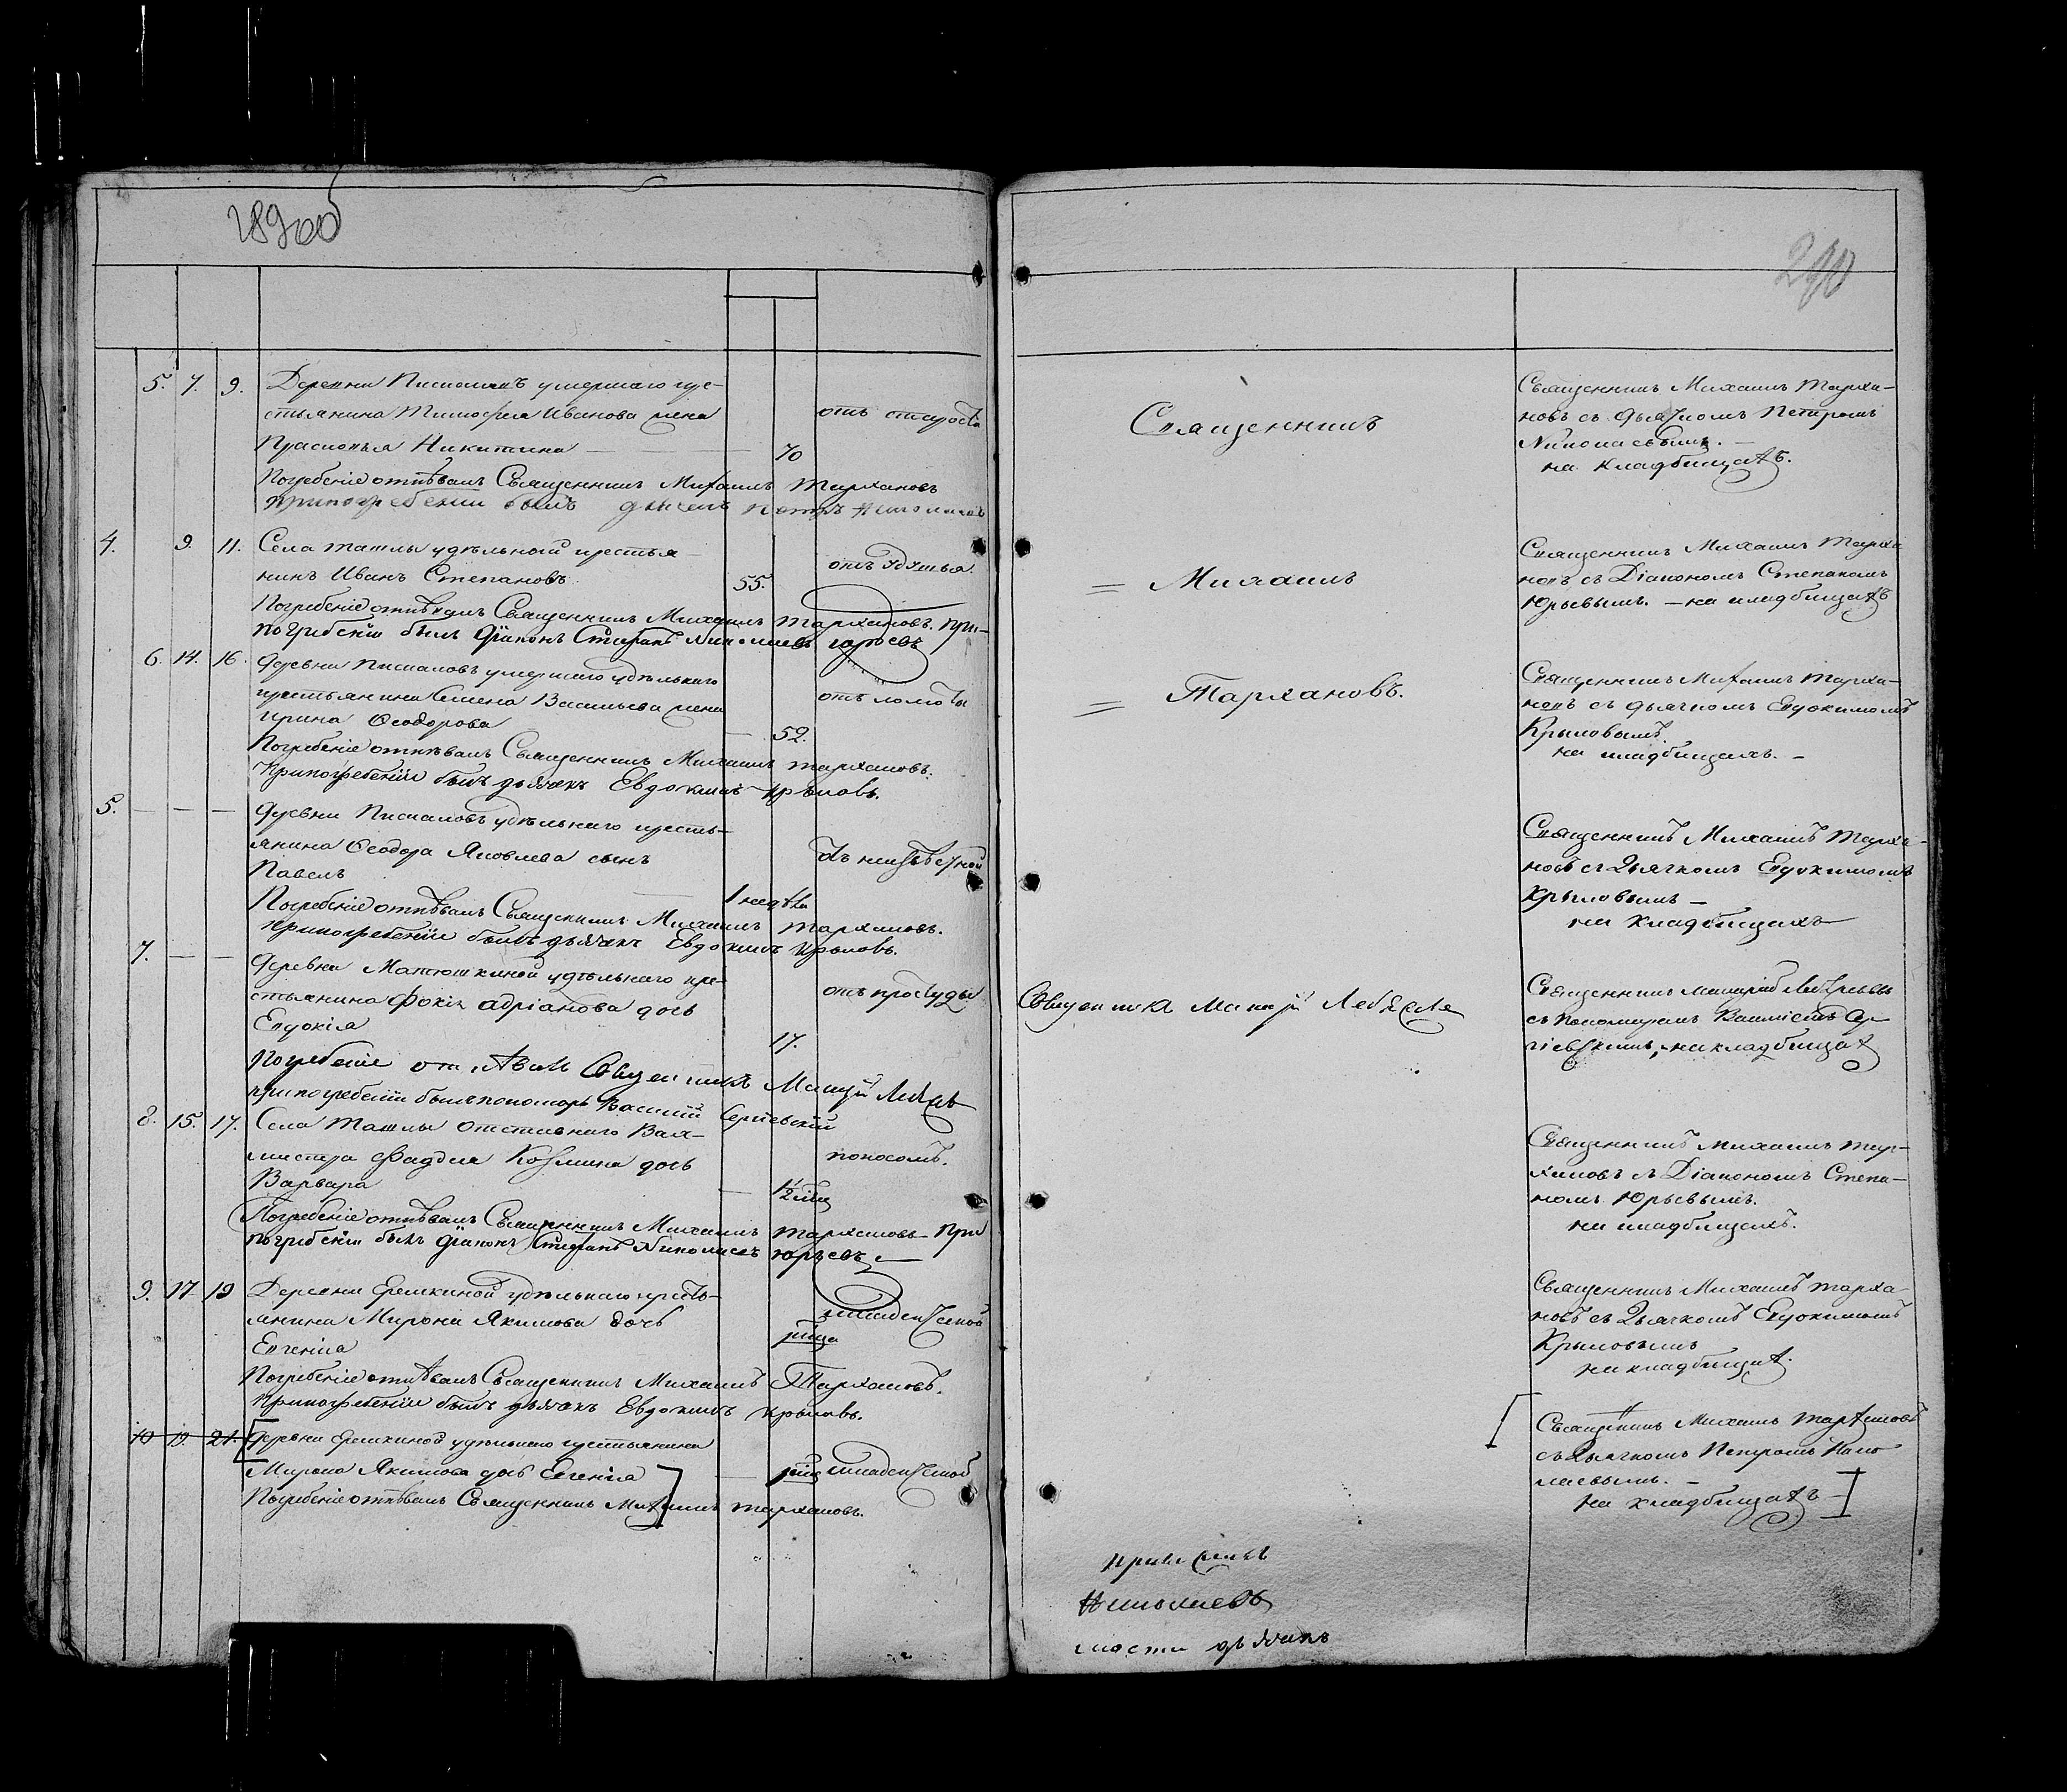 289об
5. 7. 9. Деревни умершаго кре-
стьянина Тимофея Иванова жена
Прасковья Никитина
70
отъ старости
Погребеніе отпѣвалъ Священникъ Михаилъ Тархановъ
при погребеніи былъ дьячекъ Петръ Николаевъ
4. 9. 11. Села Ташлы удѣльной крестья-
нинъ Иванъ Степановъ
55.
отъ удушья.
Погребеніе отпѣвалъ Священникъ Михаилъ Тархановъ. При
погребеніи былъ Діаконъ Стефанъ Николаевъ Юрьевъ
6. 14. 16. Деревни умершаго удѣльнаго
крестьянина Семена Васильева жена
Ирина Ѳеодорова
52.
отъ ломоты
Погребеніе отпѣвалъ Священникъ Михаилъ Тархановъ.
При погребеніи былъ дьячекъ Евдокимъ Крыловъ.
5. Деревни удѣльнаго кресть-
янина Ѳеодора Яковлева сынъ
Павелъ
1 недѣли
Погребеніе отпѣвалъ Священникъ Михаилъ Тархановъ.
При погребеніи былъ дьячекъ Евдокимъ Крыловъ.
7. Деревни Матюшкиной удѣльнаго кре-
стьянина Фоки Адріанова дочь
Евдокія
17.
отъ простуды
Погребеніе отпѣвалъ Священникъ
при погребеніи былъ пономарь Василій Сергіевскій
8. 15. 17. Села Ташлы Отставнаго Вах-
мистра Фаддея Козмина дочь
Варвара
1/2 мца
поносомъ.
Погребеніе отпѣвалъ Священникъ Михаилъ Тархановъ при
погребеніи былъ Діаконъ Стефанъ Николаевъ Юрьевъ
9. 17. 19 Деревни Еремкиной удѣльнаго кресть-
янина Мирона Якимова дочь
Евгенія
младенческой
Погребеніе отпѣвалъ Священникъ Михаилъ Тархановъ.
При погребеніи былъ дьячекъ Евдокимъ Крыловъ.
10 19. 21. Деревни Еремкиной удѣльнаго крестьянина
Мирона Якимова дочь Евгенія
младенческой
Погребеніе отпѣвалъ Священникъ Михаилъ Тархановъ.
290
Священникъ
= Михаилъ
= Тархановъ.
Николаевъ
дьячекъ
Священникъ Михаилъ Тарха-
новъ съ дьячкомъ Петромъ
Николаевымъ. —
на кладбищахъ.
Священникъ Михаилъ Тарха
новъ съ Діакономъ Степаномъ
Юрьевымъ. — на кладбищахъ
Священникъ Михаилъ Тарха-
новъ съ дьячкомъ Евдокимомъ
Крыловымъ.
на кладбищахъ. —
Священникъ Михаилъ Тарха-
новъ съ Дьячкомъ Евдокимомъ
Крыловымъ —
на кладбищахъ
Священникъ
съ Пономаремъ Василіемъ Сер
гіевскимъ, на кладбищах
Священникъ Михаилъ Тар-
хановъ съ Діакономъ Степа-
номъ Юрьевымъ.
на кладбищахъ.
Священникъ Михаилъ Тарха
новъ съ Дьячкомъ Евдокимомъ
Крыловымъ
на кладбищах.
Священникъ Михаилъ Тархановъ
съ Дьячкомъ Петромъ Нико
лаевымъ. —
на кладбищахъ